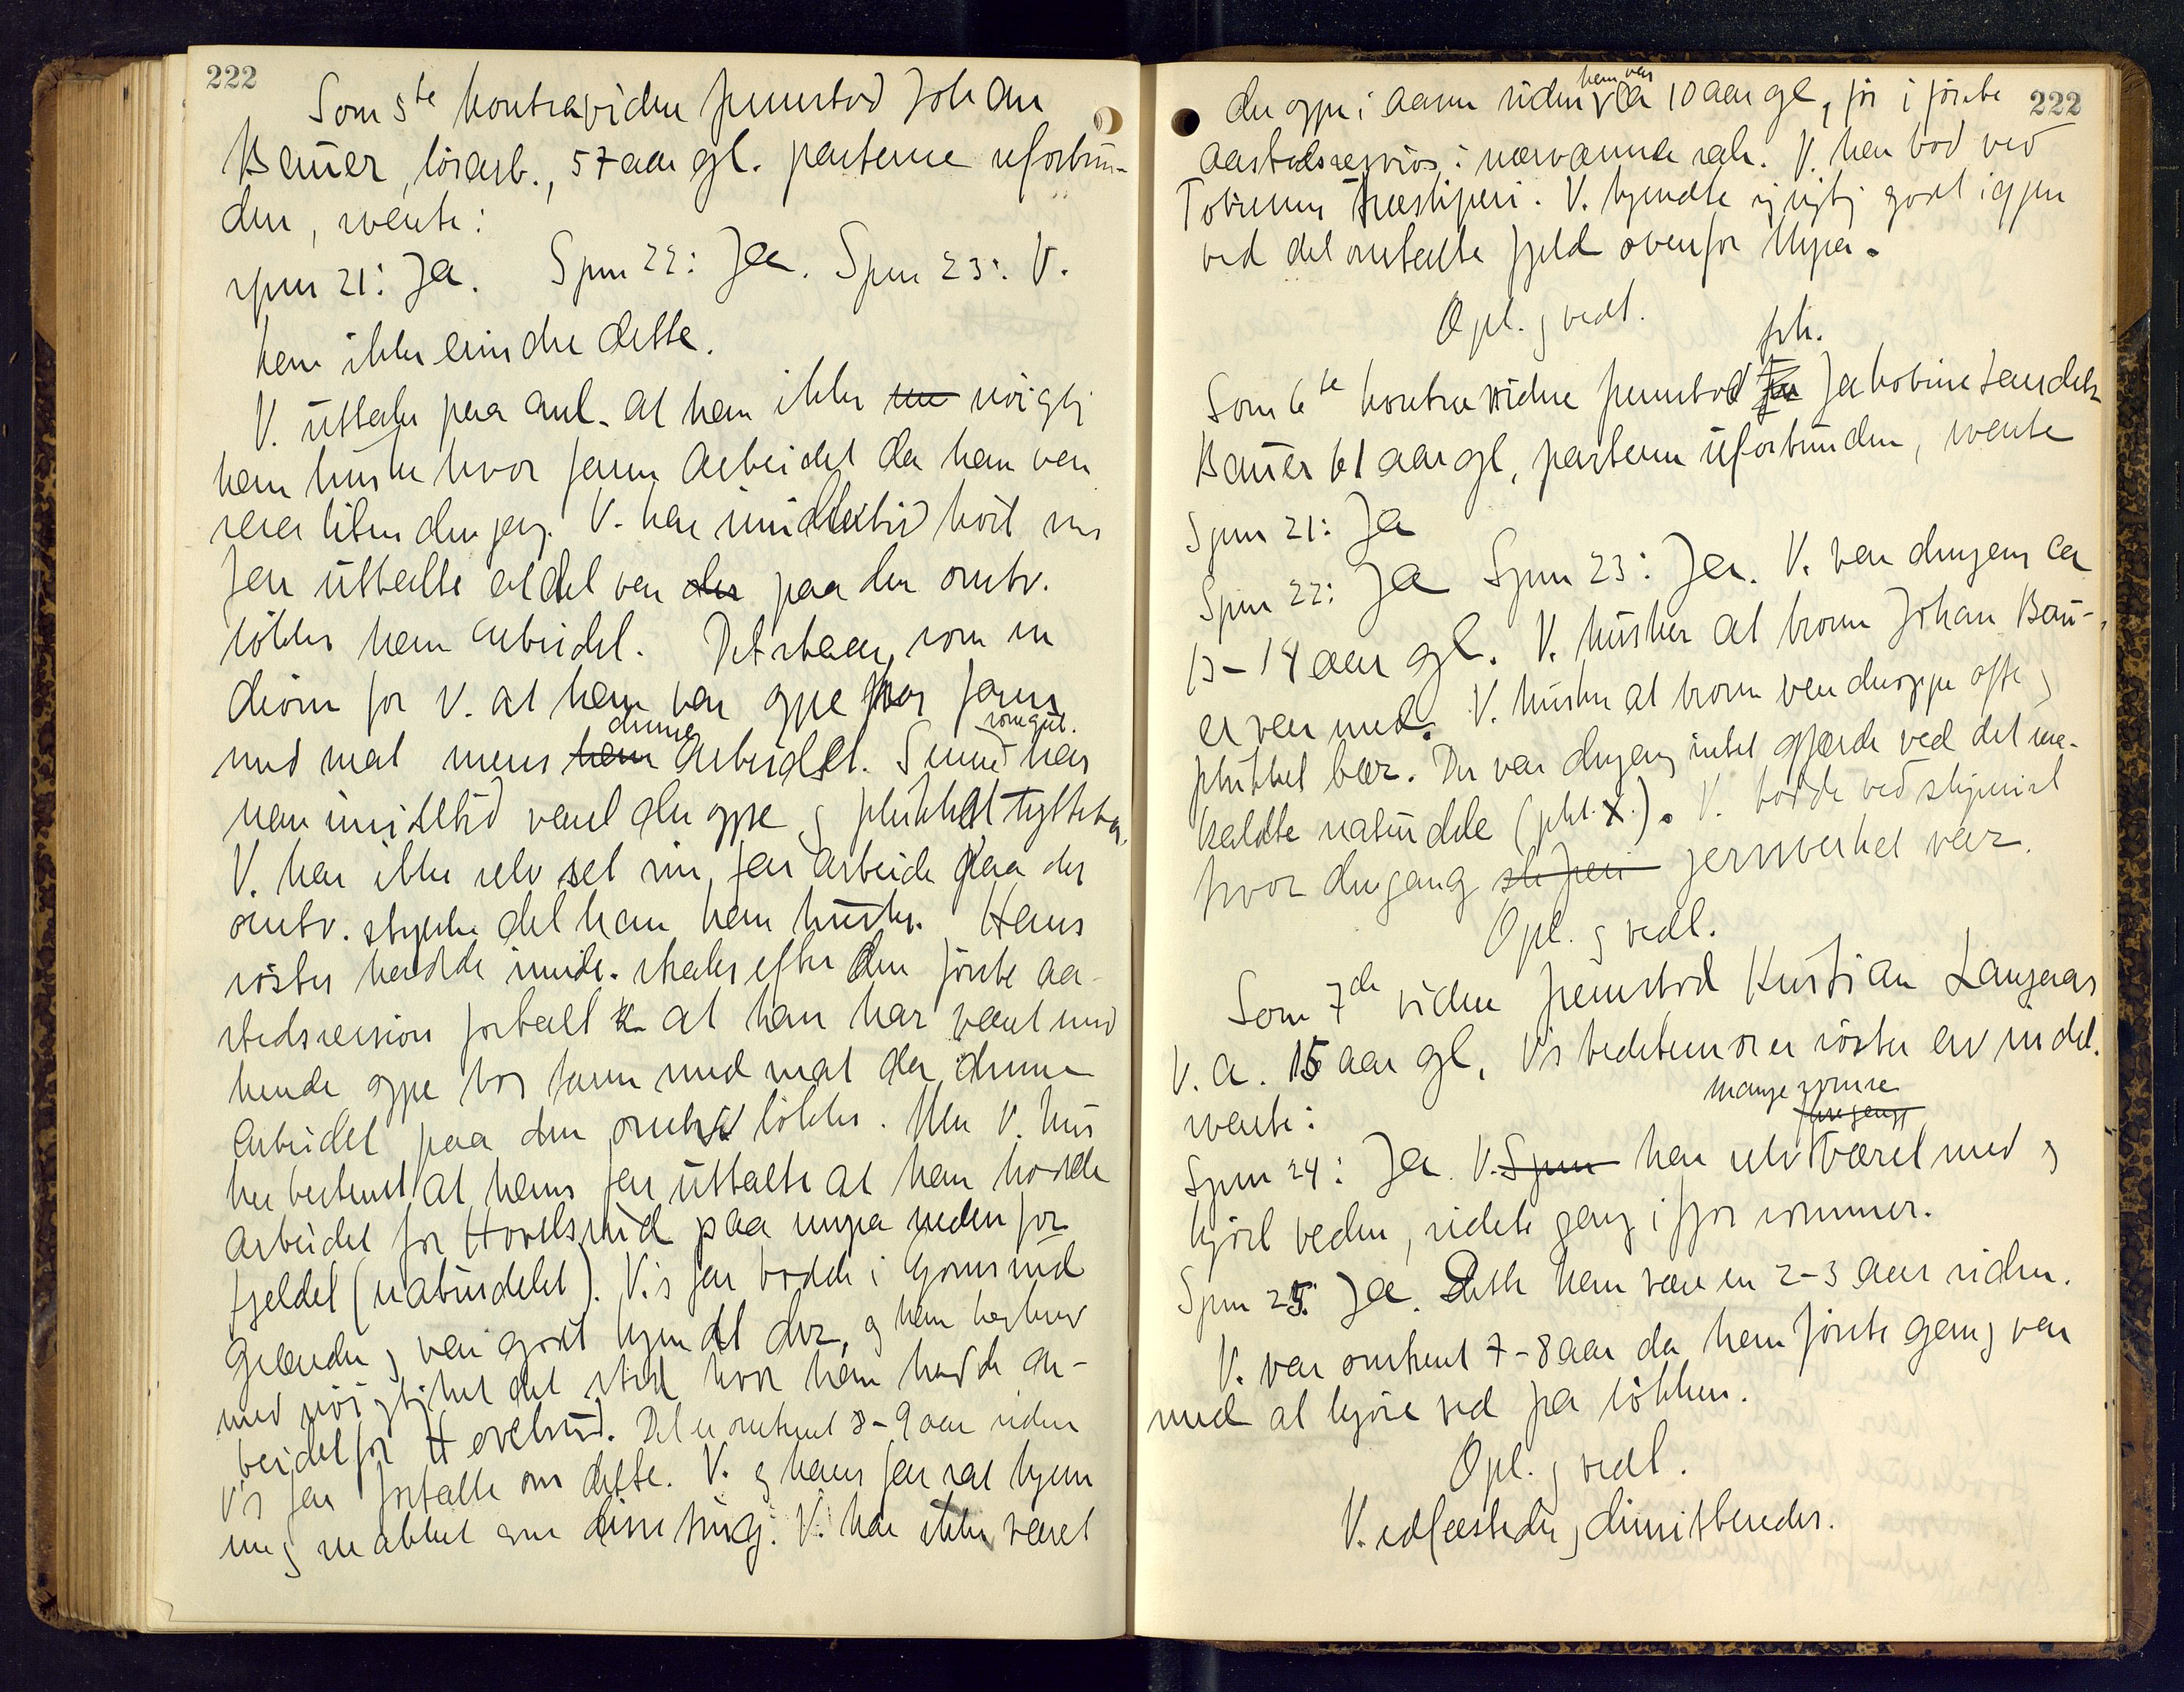 222
Som 5te kontravidne fremstod Johan
Bauer, lösarb., 57 aar gl. parterne uforbun-
den, svarte:
spm 21: Ja. Spm 22: Ja. Spm 23: V.
kan ikke erindre dette.
V. uttaler paa anl. at han ikke nöigtig
kan huske hvor faren arbeidet da han var
saa liten dengang. V. har imidlertid hört sin
far uttalte at det var der paa den omtv.
lökke han arbeidet. Det staar som en
dröm for V. at han var oppe hos faren
med mat mens han denne arbeidet. Senere har
han imidlertid været der oppe og plukket tyttebær.
V. har ikke selv set sin far arbeide paa det
omtv. stykke det han kan huske. Hans
söster hadde imidl. straks efter den förste aa-
stedsreision fortalt at han har været med
hende oppe hos faren med mat da denne
arbeidet paa den omtv. lökke. Men V. hus
ker bestemt at hans far uttalte at han hadde
arbeidet for Hovelsrud paa myra nedenfor
fjeldet (naturdelet). V.s far bodde i Gomsrud
grænden og var godt kjendt der, og kan
med nöigtighet det sted hvor han hadde ar-
beidet for Hovelsrud. Det er omtrent 8-9 aar siden
V's far fortalte om dette. V. og hans far sat hjem
me og snakket om disse ting. V. har ikke været
222
der oppe i aarene siden han var ca 10 aar gl, för i förste
aastedsreision i nærværende sak. V. har bod ved
Tobinens træsliperi. V. kjendte sig nögtig godt igjen
ved det omtalte fjeld ovenfor Myra.
Opl. og vedt.
Som 6te kontravidne fremstod frk. Jakobine
Bauer 61 aar gl, parterne uforbunden, svarte
Spm 21: Ja
Spm 22: Ja Spm 23: Ja. V. var dengang ca
13-14 aar gl. V. husker at broren Johan Bau-
er var med. V. husker at broren var deroppe ofte og
plukket bær. Der var dengang intet gjærde ved det saa-
kaldte naturdele (pkt. X). V. bodde ved sliperiet
hvor dengang sliperi jernverket var.
Opl. og vedt.
Som 7de vidne fremstod Kristian Langaas
V. a. 15 aar gl, V's bedstemor er söster av indst.
svarte:
Spm 24: Ja. V. Spm har selv mange somre været med og
kjört veden, sidste gang i fjor sommer.
Spm 25: Ja. Dette kan være en 2-3 aar siden.
V. var omtrent 7-8 aar da han förste gang var
med at kjöre ved fra lökken.
Opl. og vedt.
V. edfæstedes, dimitteredes.